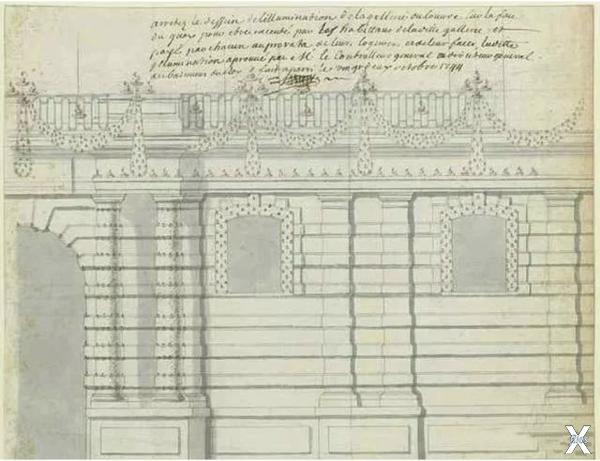 arretez le dessein de lillumination de la gallerie du louvre sur la face
du quay pour etre executé par les habittans de laditte gallerie et
payé par chacun au prorata de leurs logemens et de leur face, laditte
illumination aprouvé par Mr. le Controlleur general
des batimens du Roy fait a paris le vingt deux octobre 1744
X